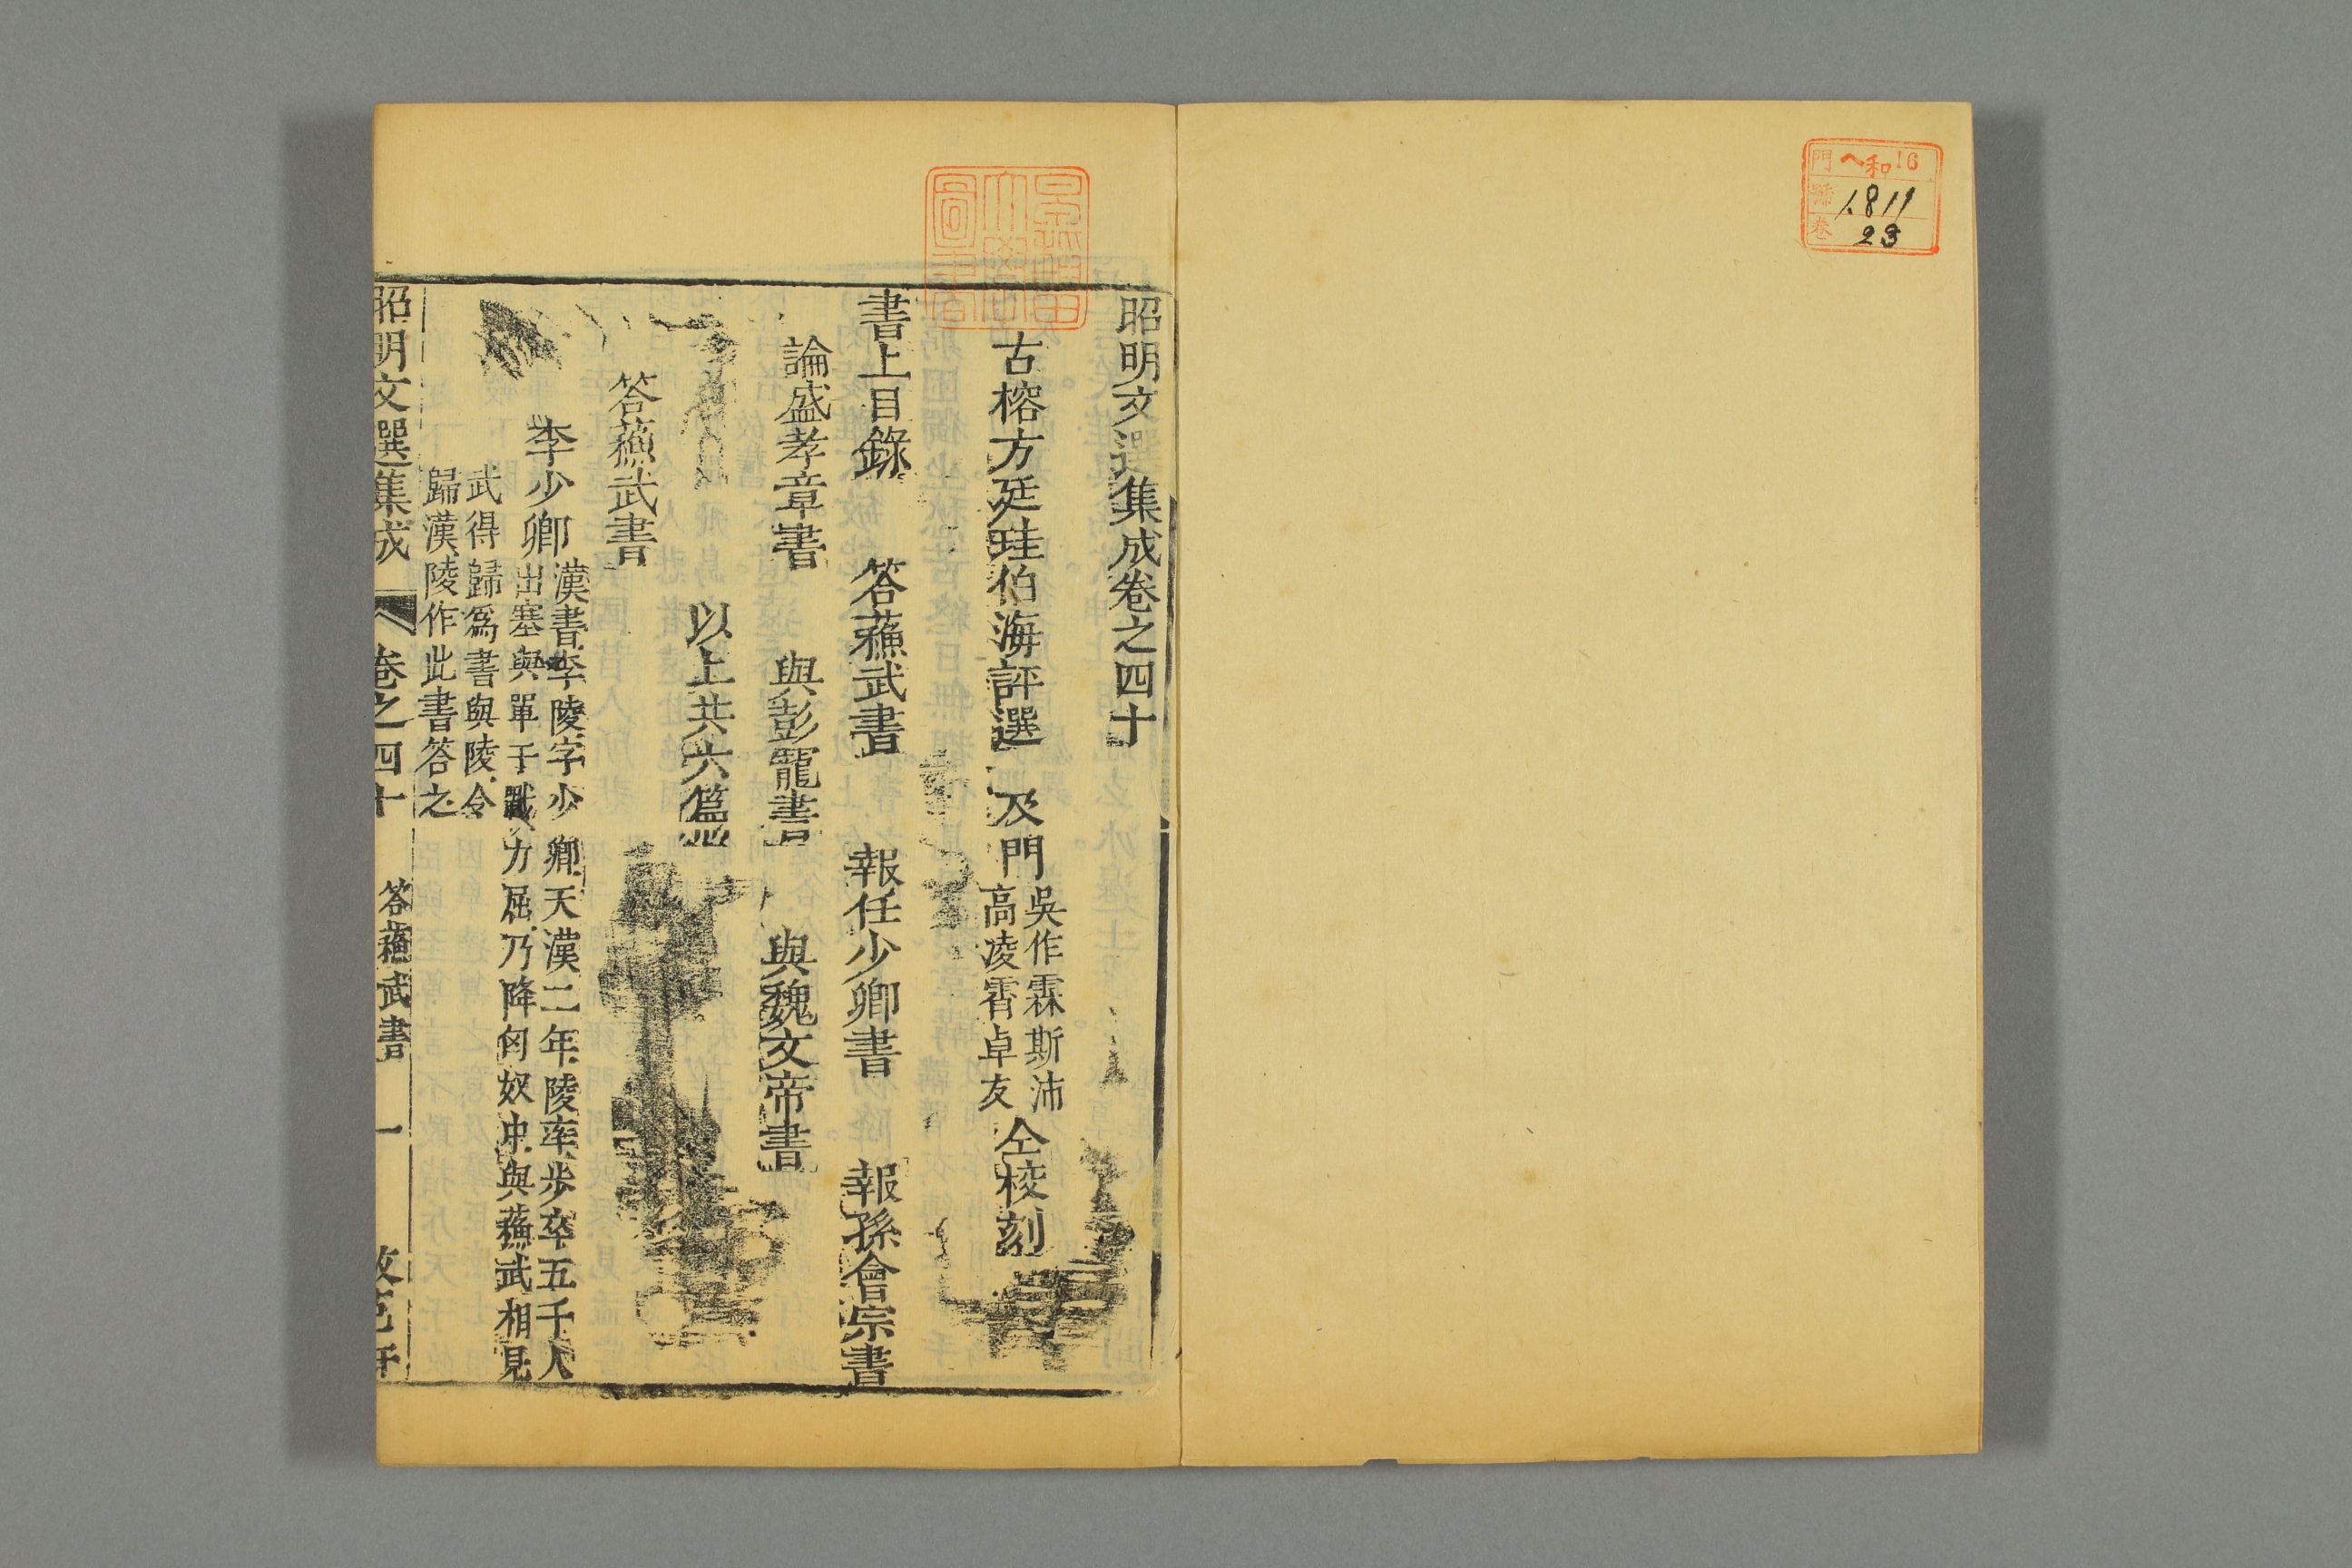 門 ヘ和16
號 1811
卷 23
昭明文選集成卷之四十
古榕方廷珪伯海評選 及門
吳作霖斯沛
高凌霄卓友
仝校刻
書上目錄 答蘓武書 報任少卿書 報孫會宗書
論盛孝章書 與彭寵書 與魏文帝書
以上共六篇
答蘓武書
李少卿
漢書李陵字少卿天漢二年陵率步卒五千人
出塞與單于戰力屈乃降匈奴中與蘓武相見
武得歸爲書與陵令
歸漢陵作此書答之
昭明文選集成 卷之四十 答蘓武書 一